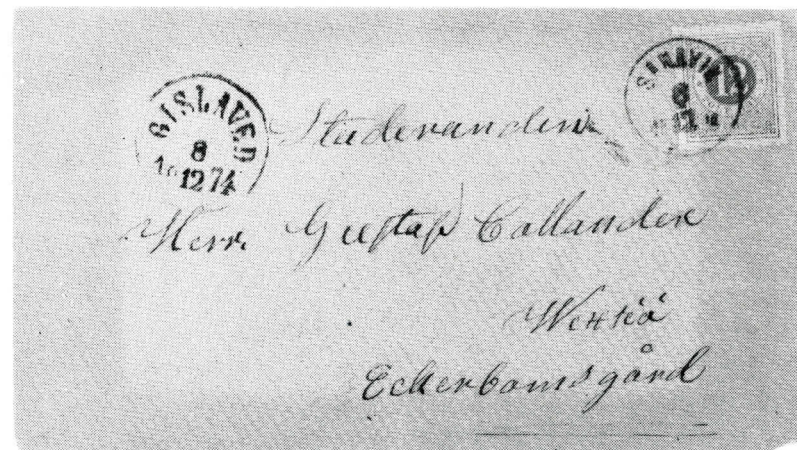 GISLAVED
8
12 74
12
8
12
Studeranden
Herr Gustaf Callander
Wexiö
Eckerbomsgård